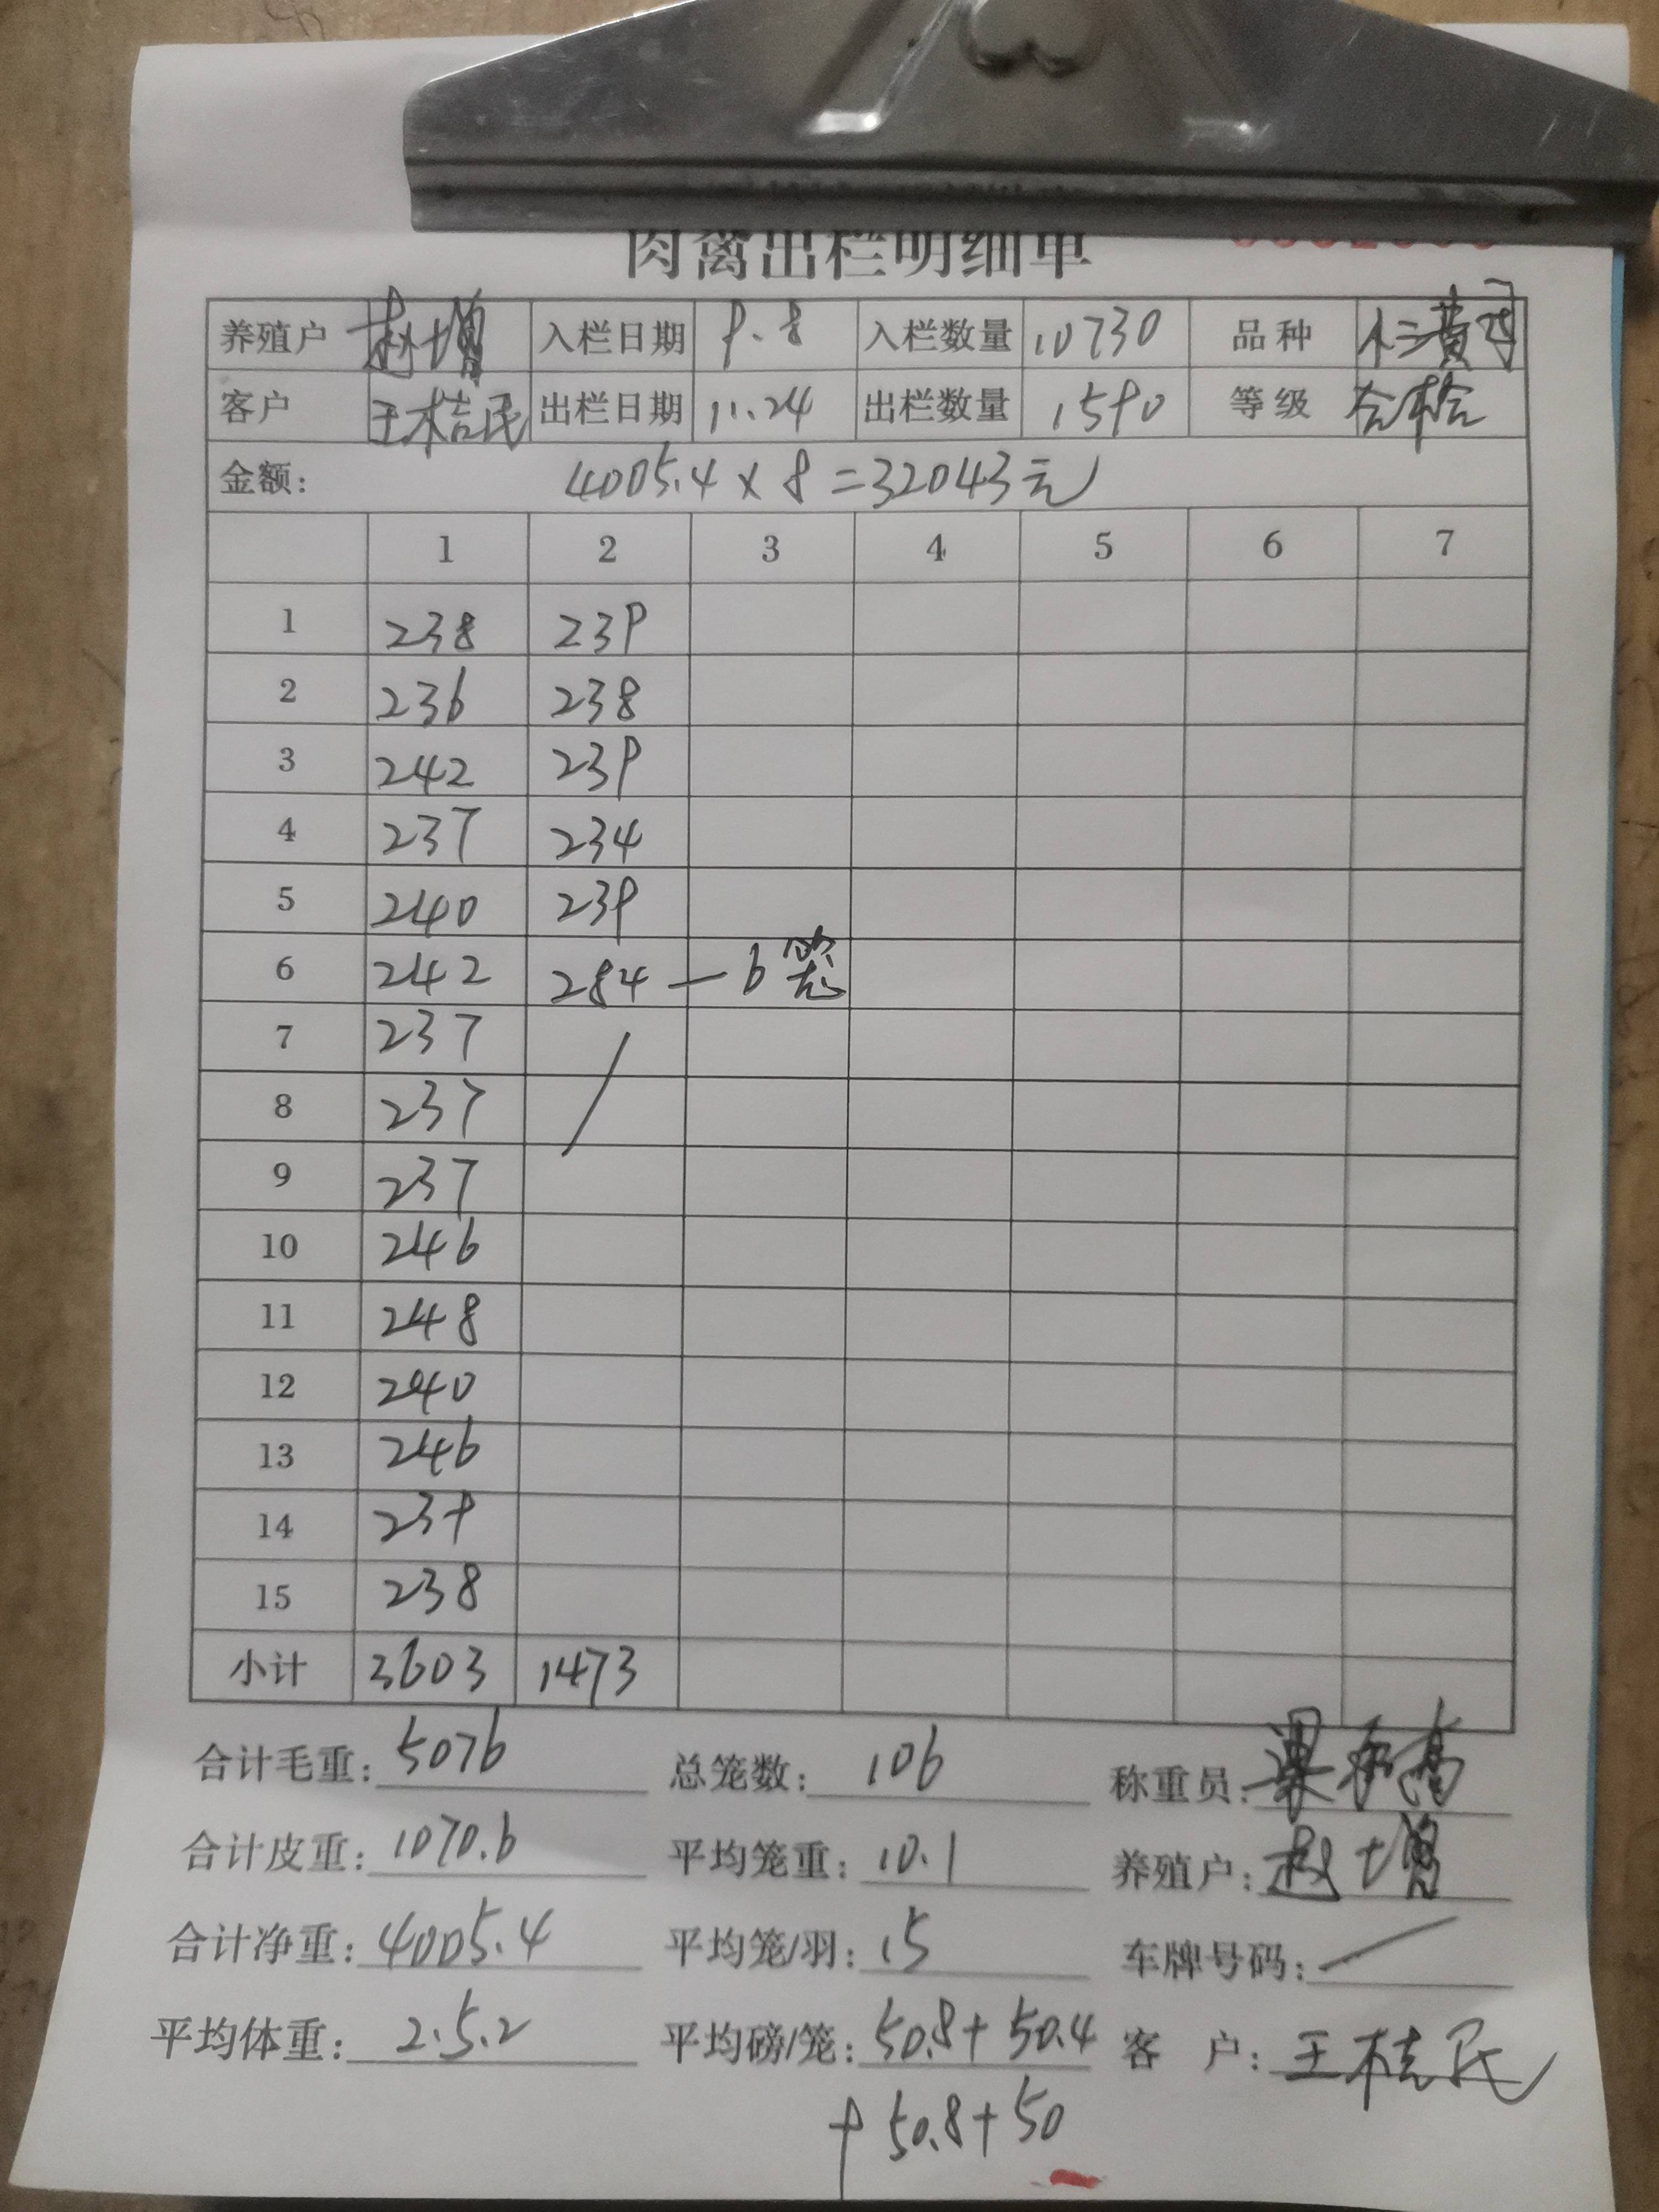 肉禽出栏明细单
养殖户 赵增 入栏日期 9.8 入栏数量 10730 品种 仁三黄鸡
客户 王桂民 出栏日期 11.24 出栏数量 1590 等级 合格
金额: 4005.4 x 8 = 32043元
1 2 3 4 5 6 7
1 238 239
2 236 238
3 242 239
4 237 234
5 240 239
6 242 284 — 6笼
7 237 /
8 237
9 237
10 246
11 248
12 240
13 246
14 239
15 238
小计 3603 1473
合计毛重: 5076 总笼数: 106 称重员:
合计皮重: 1070.6 平均笼重: 10.1 养殖户: 赵增
合计净重: 4005.4 平均笼/羽: 15 车牌号码: /
平均体重: 2.5.2 平均磅/笼: 50.8+50.4 客 户: 王桂民
+50.8+50